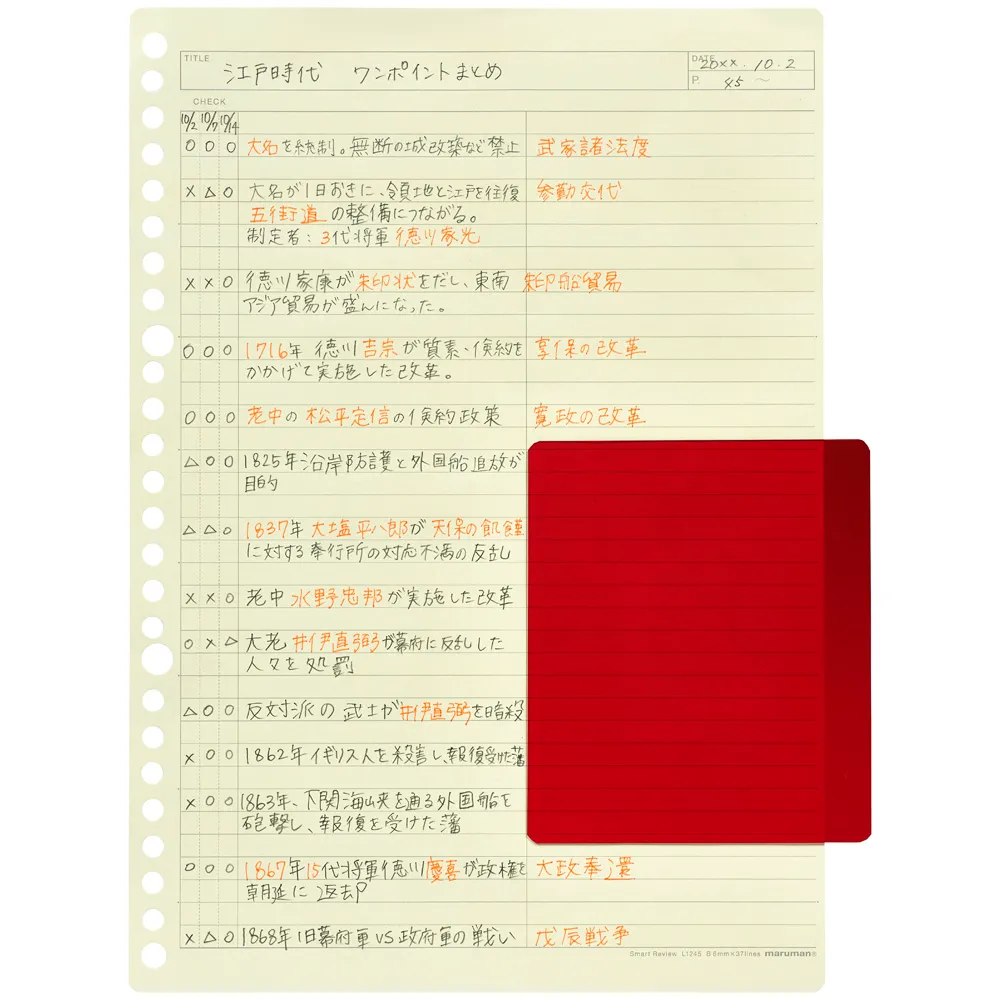 TITLE 江戸時代 ワンポイントまとめ
DATE 20xx. 10. 2
P. 45 〜
CHECK
10/2 10/7 10/14
○ ○ ○ 大名を統制。無断の城改築など禁止 武家諸法度
× △ ○ 大名が1日おきに、領地と江戸を往復 参勤交代
五街道 の整備につながる。
制定者：3代将軍 徳川家光
× × ○ 徳川家康が朱印状をだし、東南 朱印船貿易
アジア貿易が盛んになった。
○ ○ ○ 1716年 徳川吉宗が質素・倹約を 享保の改革
かかげて実施した改革。
○ ○ ○ 老中の 松平定信の倹約政策 寛政の改革
△ ○ ○ 1825年沿岸防護と外国船追放が
目的
△ △ ○ 1837年 大塩平八郎が 天保の飢饉
に対する奉行所の対応不満の反乱
× × ○ 老中 水野忠邦が実施した改革
○ × △ 大老 井伊直弼が幕府に反乱した
人々を処罰
△ ○ ○ 反対派の 武士が井伊直弼を暗殺
× ○ ○ 1862年イギリス人を殺害し、報復受けた藩
× ○ ○ 1863年、下関海峡を通る外国船を
砲撃し、報復を受けた藩
○ ○ ○ 1867年15代将軍徳川慶喜が政権を 大政奉還
朝廷に返却
× △ ○ 1868年旧幕府軍 VS 政府軍の戦い 戊辰戦争
Smart Review L1245 B 6mm×37lines maruman®